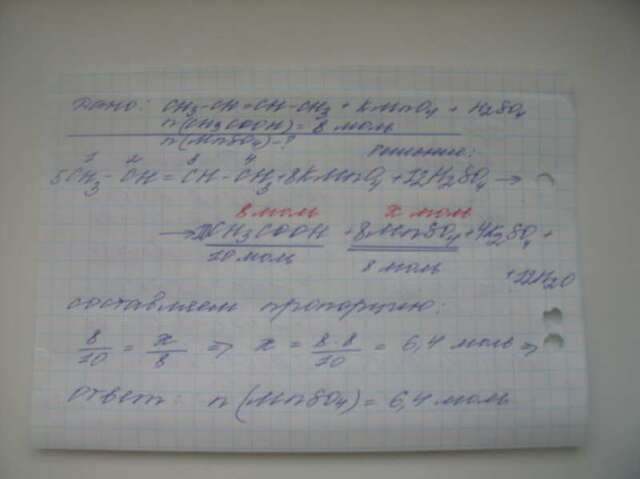 Дано: CH3-CH=CH-CH3 + KMnO4 + H2SO4
n(CH3COOH) = 8 моль
n(MnSO4) - ?
решение:
1 2 3 4
5CH3-CH=CH-CH3+8KMnO4+12H2SO4 →
8 моль x моль
→10CH3COOH +8MnSO4+4K2SO4+
10 моль 8 моль +12H2O
составляем пропорцию:
8/10 = x/8 ⇒ x = 8·8/10 = 6,4 моль ⇒
ответ: n(MnSO4) = 6,4 моль